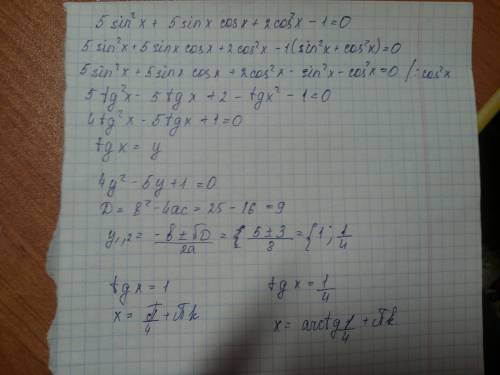 5 sin²x + 5 sinx cosx + 2 cos²x - 1 = 0
5 sin²x + 5 sinx cosx + 2 cos²x - 1(sin²x + cos²x) = 0
5 sin²x + 5 sinx cosx + 2 cos²x - sin²x - cos²x = 0 /: cos²x
5 tg²x - 5 tgx + 2 - tgx² - 1 = 0
4 tg²x - 5 tgx + 1 = 0
tg x = y
4y² - 5y + 1 = 0
D = в² - 4ac = 25 - 16 = 9
y₁,₂ = (-в ± √D)/2a = { (5 ± 3)/8 = { 1 ; 1/4
tg x = 1 tg x = 1/4
x = π/4 + πk x = arctg 1/4 + πk